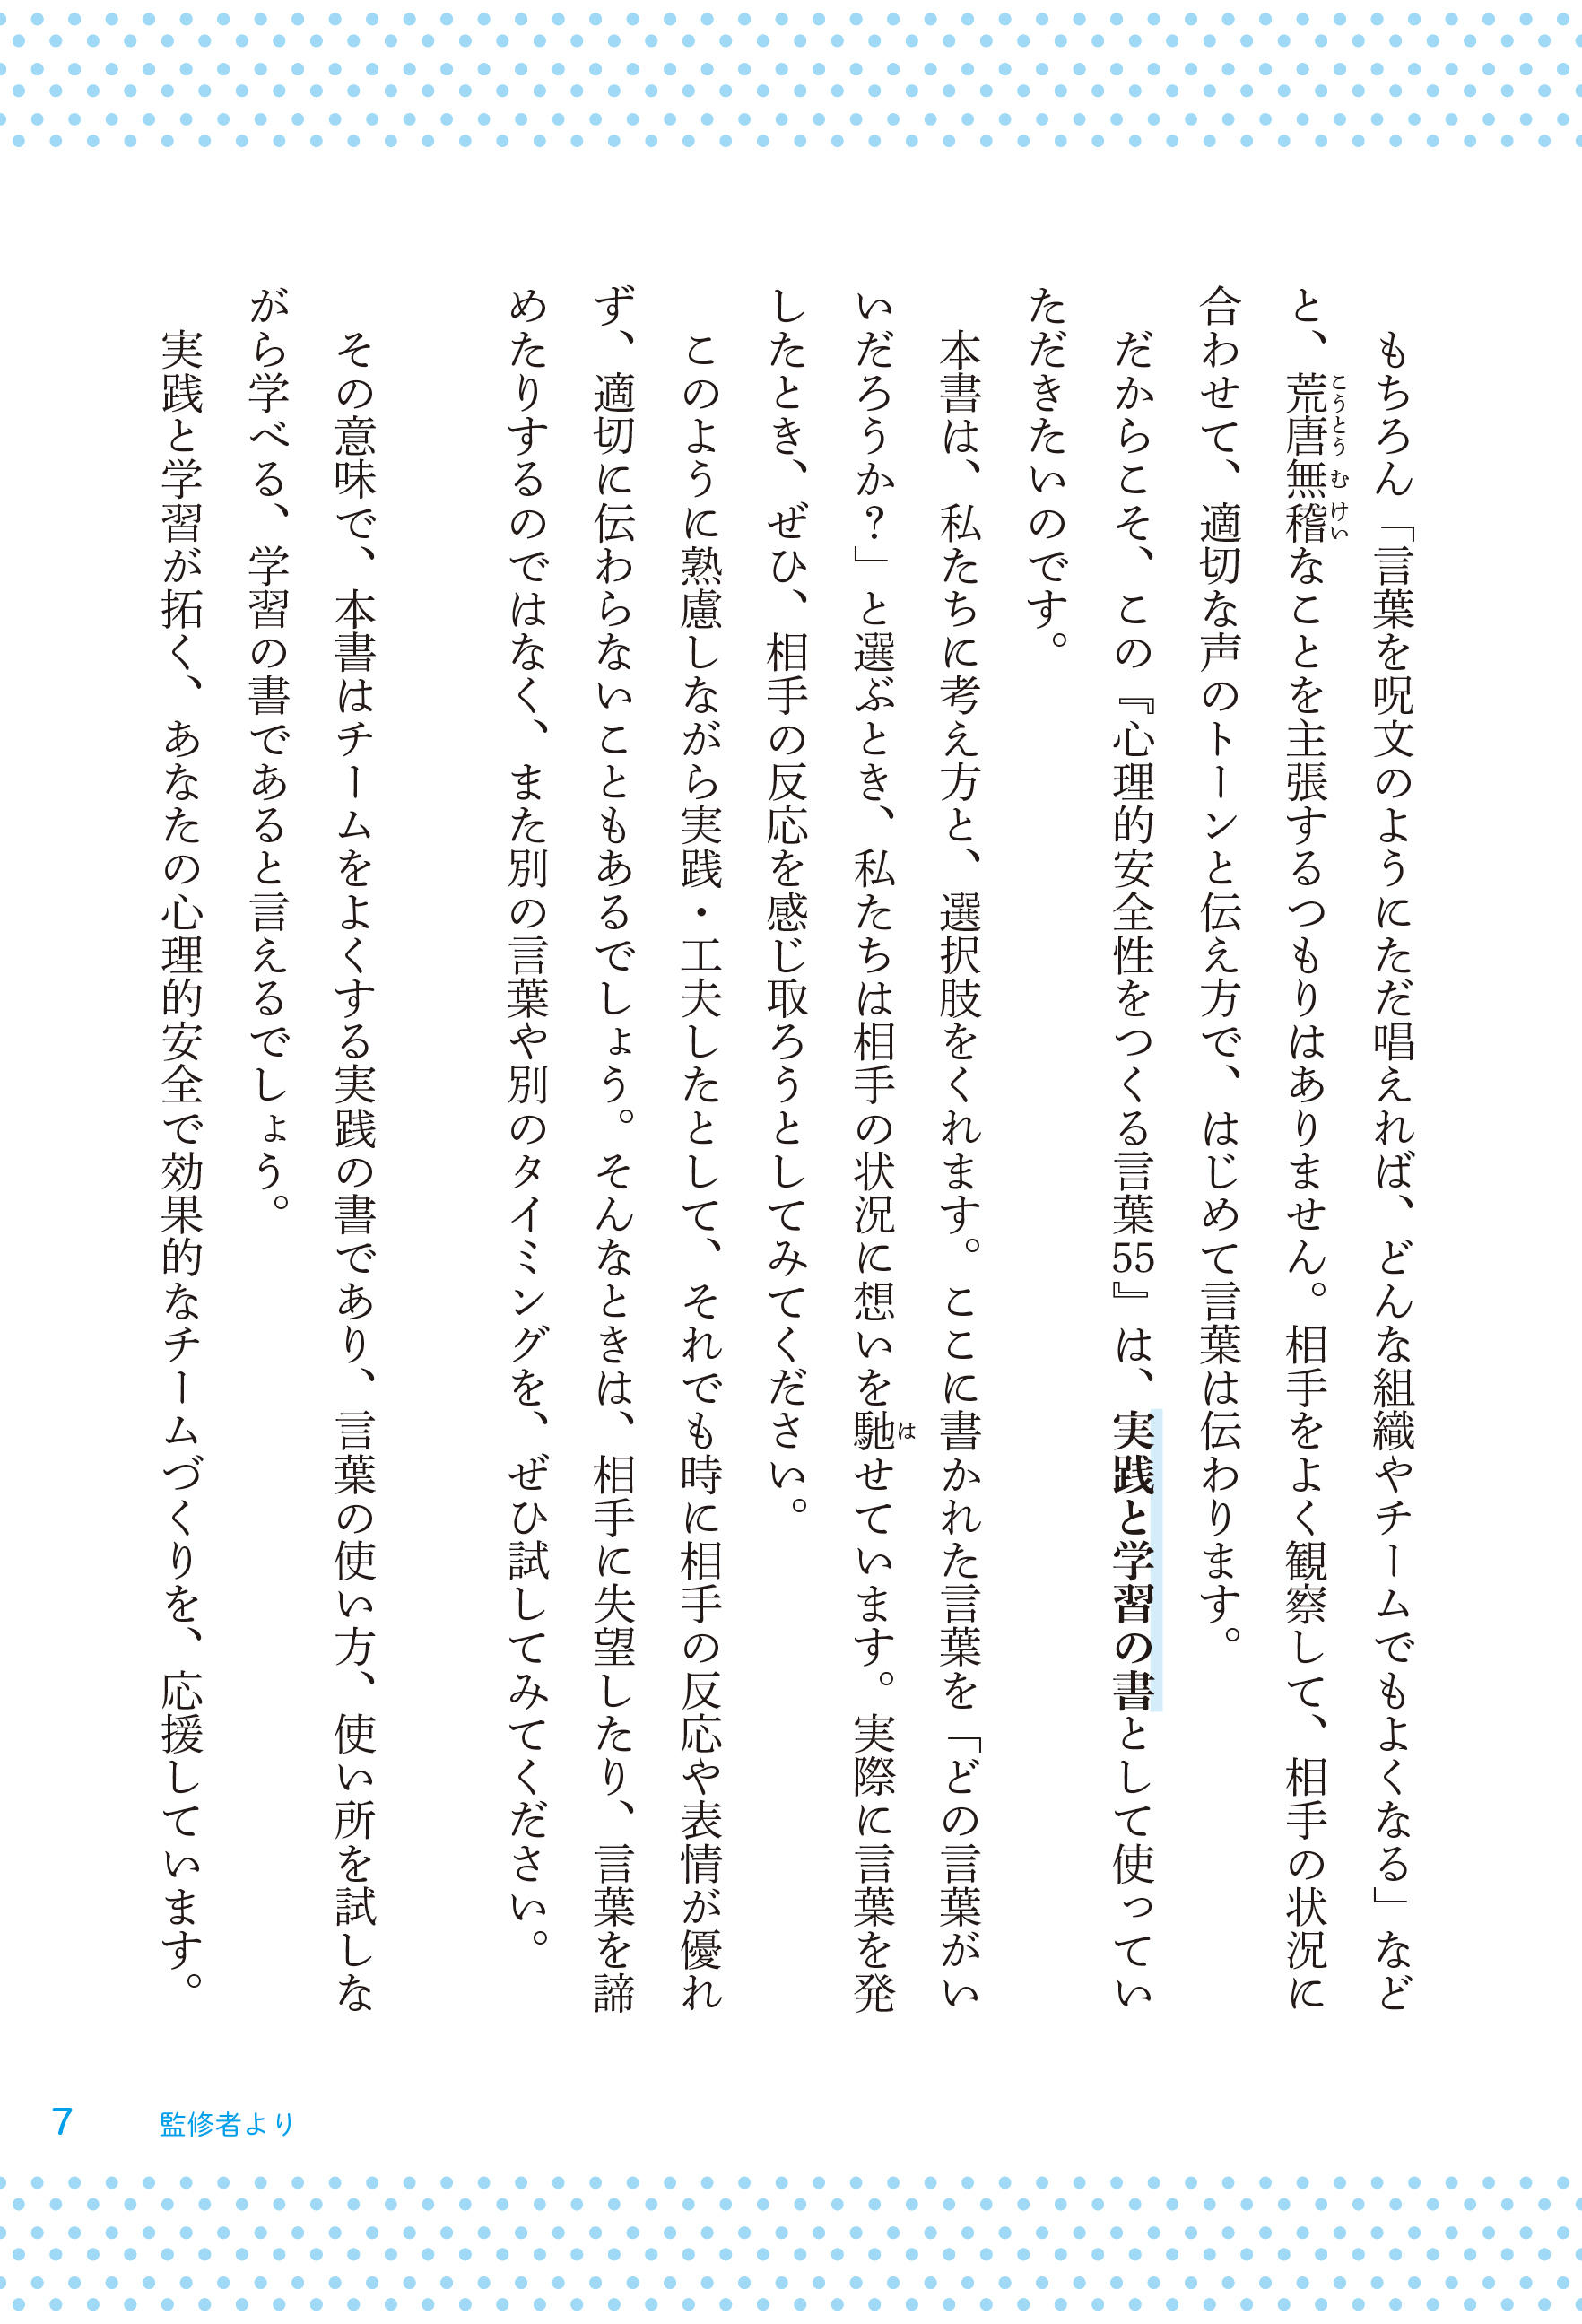 もちろん「言葉を呪文のようにただ唱えれば、どんな組織やチームでもよくなる」など
と、荒唐無稽なことを主張するつもりはありません。相手をよく観察して、相手の状況に
こうとう む けい
合わせて、適切な声のトーンと伝え方で、はじめて言葉は伝わります。
だからこそ、この『心理的安全性をつくる言葉55』は、実践と学習の書として使ってい
ただきたいのです。
本書は、私たちに考え方と、選択肢をくれます。ここに書かれた言葉を「どの言葉がい
いだろうか?」と選ぶとき、私たちは相手の状況に想いを馳せています。実際に言葉を発
は
したとき、ぜひ、相手の反応を感じ取ろうとしてみてください。
このように熟慮しながら実践・工夫したとして、それでも時に相手の反応や表情が優れ
ず、適切に伝わらないこともあるでしょう。そんなときは、相手に失望したり、言葉を諦
めたりするのではなく、また別の言葉や別のタイミングを、ぜひ試してみてください。
その意味で、本書はチームをよくする実践の書であり、言葉の使い方、使い所を試しな
がら学べる、学習の書であると言えるでしょう。
実践と学習が拓く、あなたの心理的安全で効果的なチームづくりを、応援しています。
7 監修者より